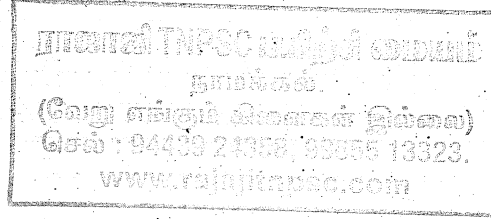 ராஜாஜி TNPSC பயிற்சி மையம்
நாமக்கல்.
(வேறு எங்கும் கிளைகள் இல்லை)
செல் : 94439 21358, 98655 13323.
www.rajajitnpsc.com